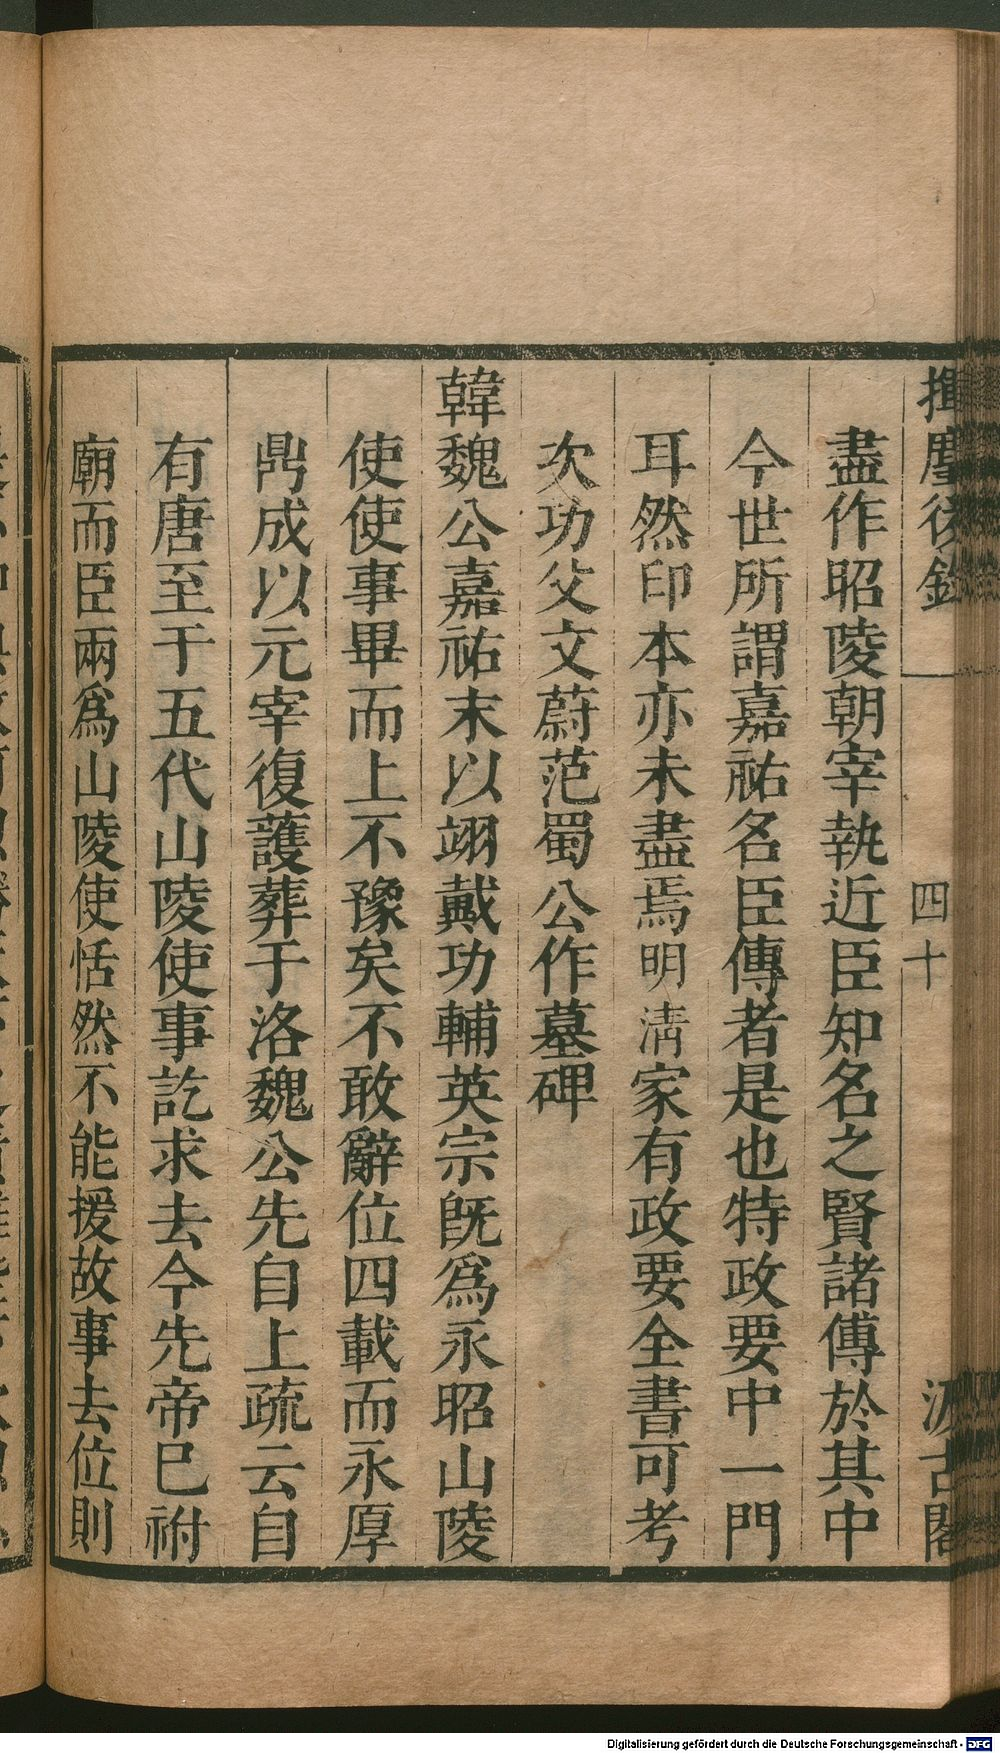 揮麈後錄
四十
汲古閣
盡作昭陵朝宰執近臣知名之賢諸傳於其中
今世所謂嘉祐名臣傳者是也特政要中一門
耳然印本亦未盡焉明淸家有政要全書可考
次功父文蔚范蜀公作墓碑
韓魏公嘉祐末以翊戴功輔英宗旣爲永昭山陵
使使事畢而上不豫矣不敢辭位四載而永厚
鼎成以元宰復護葬于洛魏公先自上疏云自
有唐至于五代山陵使事訖求去今先帝已祔
廟而臣兩爲山陵使恬然不能援故事去位則
Digitalisierung gefördert durch die Deutsche Forschungsgemeinschaft - DFG